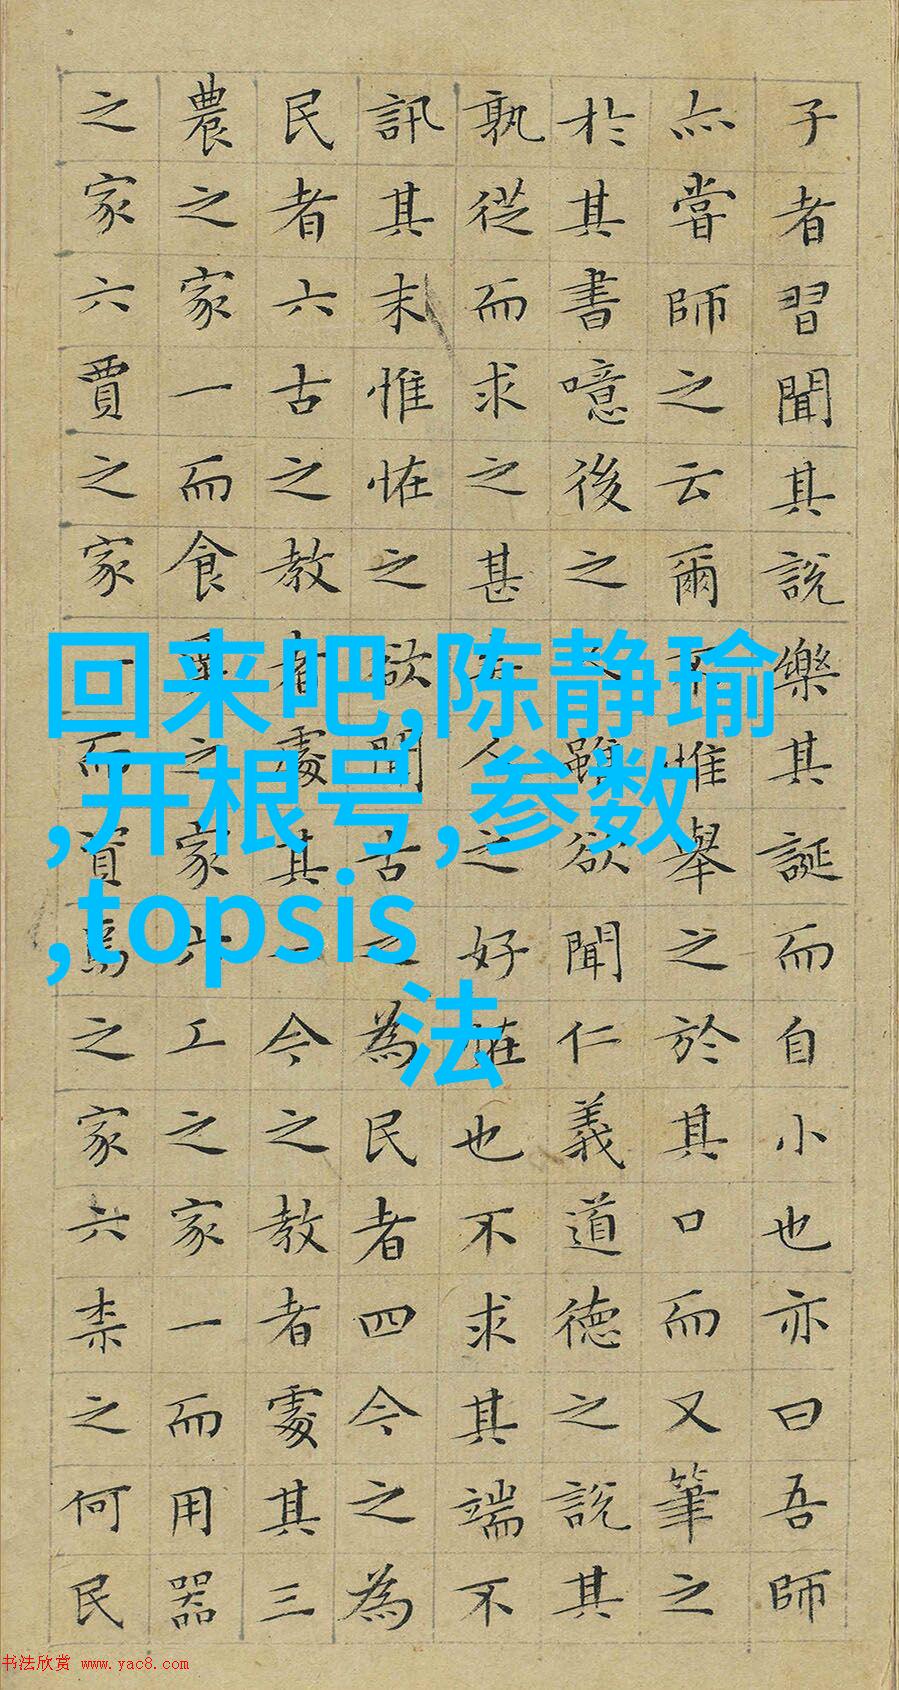 子者習聞其說樂其誕而自小也亦曰吾師
亦嘗師之云爾不惟舉之於其口而又筆之
於其書噫後之雖欲聞仁義道德之說其
孰從而求之甚人之好恠也不求其端不
訊其末惟恠之欲聞古之為民者四今之為
民者六古之教者處其一今之教者處其三
農之家一而食粟之家六工之家一而用器
之家六賈之家而資焉之家六柰之何民
回来吧,陈静瑜
,开根号,参数
,topsis
法
书法欣赏 www.yac8.com